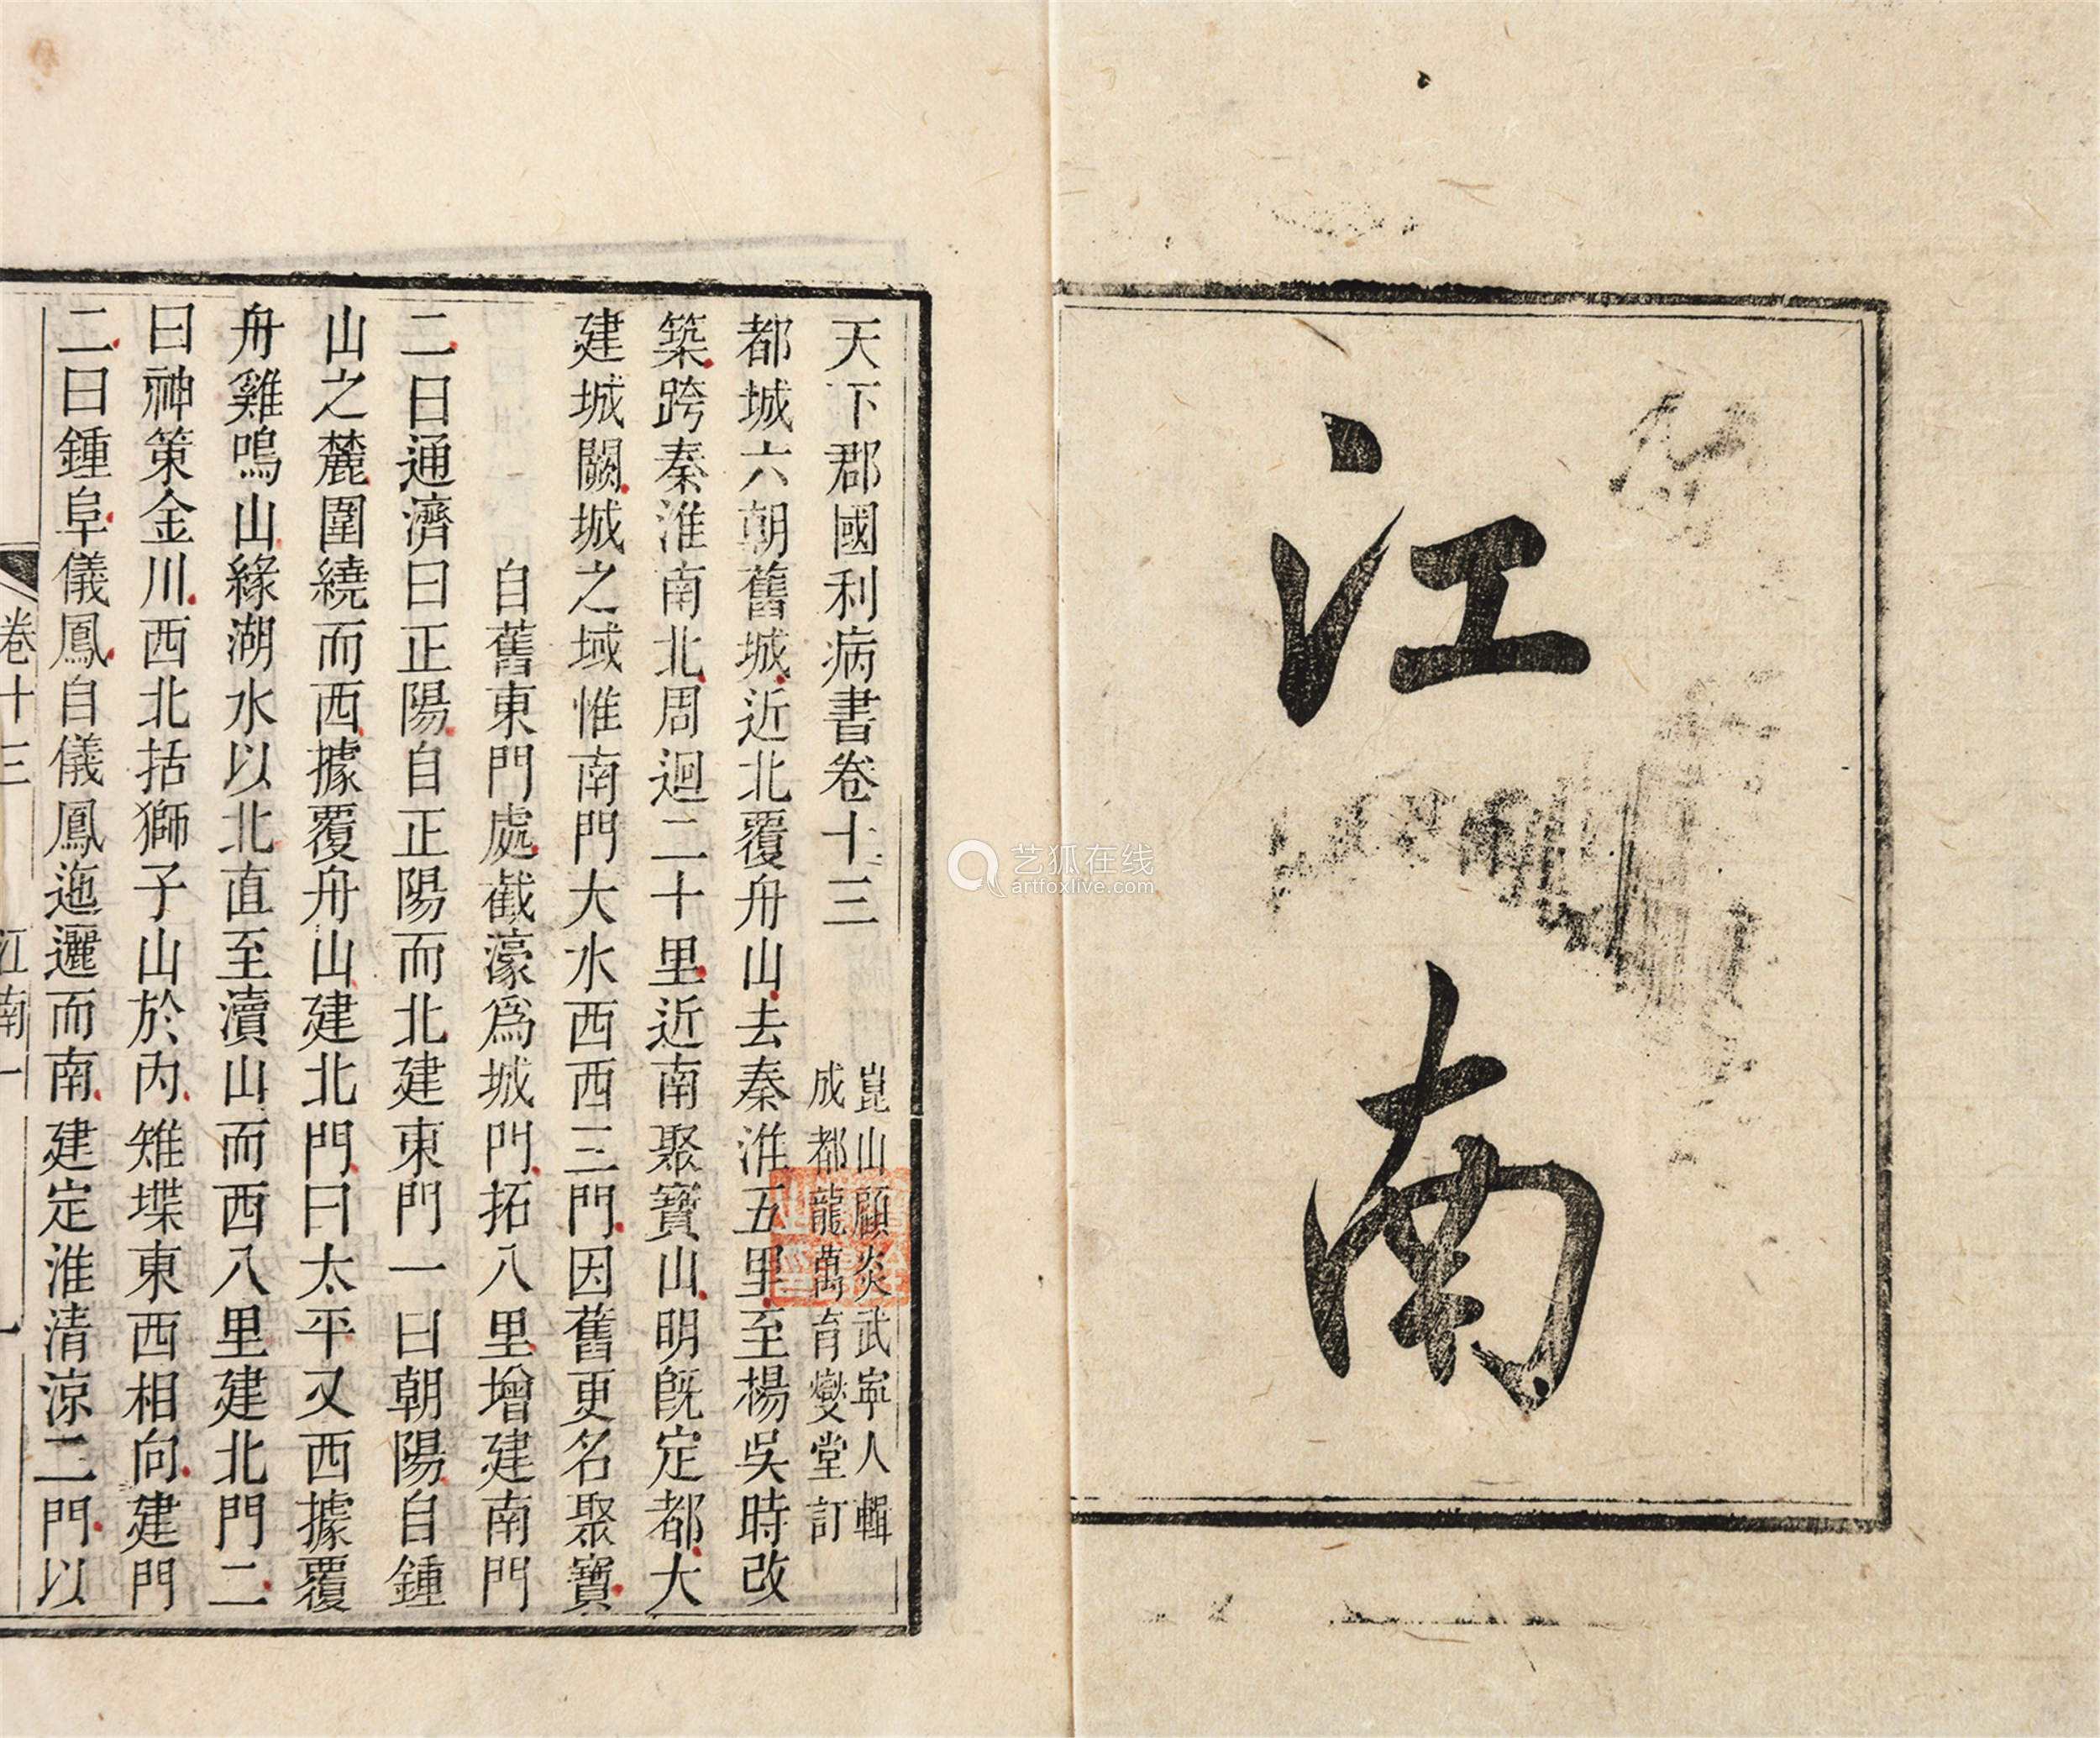 江南
天下郡國利病書卷十三
崑山顧炎武寧人輯
成都龍萬育燮堂訂
都城六朝舊城近北覆舟山去秦淮五里至楊吳時改
築跨秦淮南北周迴二十里近南聚寶山明旣定都大
建城闕城之域惟南門大水西西三門因舊更名聚寶
自舊東門處截濠爲城門拓八里增建南門
二曰通濟曰正陽自正陽而北建東門一曰朝陽自鍾
山之麓圍繞而西據覆舟山建北門曰太平又西據覆
舟雞鳴山緣湖水以北直至瀆山而西八里建北門二
曰神策金川西北括獅子山於內雉堞東西相向建門
二曰鍾阜儀鳳自儀鳳迤邐而南建定淮清涼二門以
卷十三 江南一 一
艺狐在线
artfoxlive.com